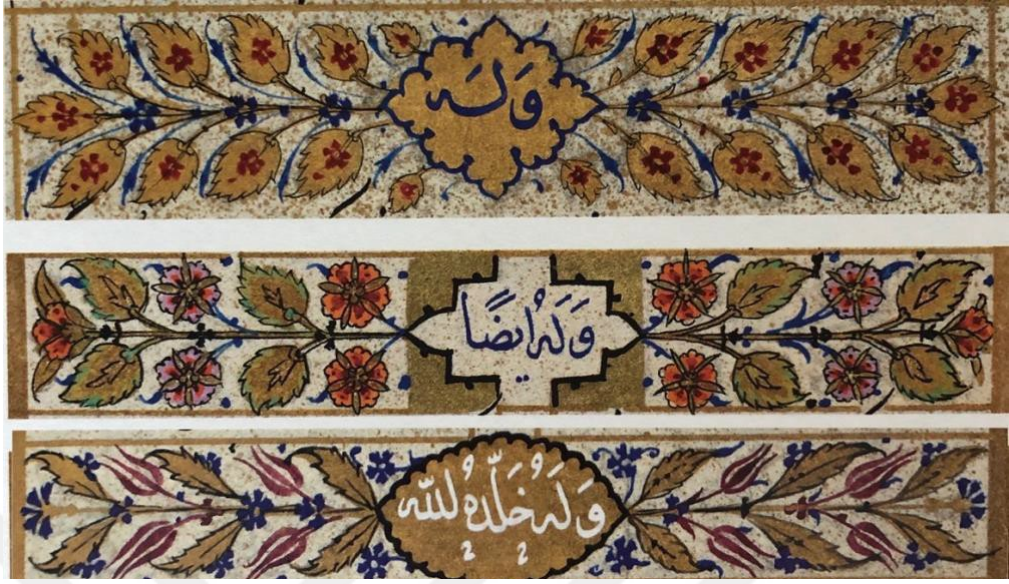 وَلَهُ
وَلَهُ ايضًا
وَلَهُ خَلَّدَهُ اللّٰه